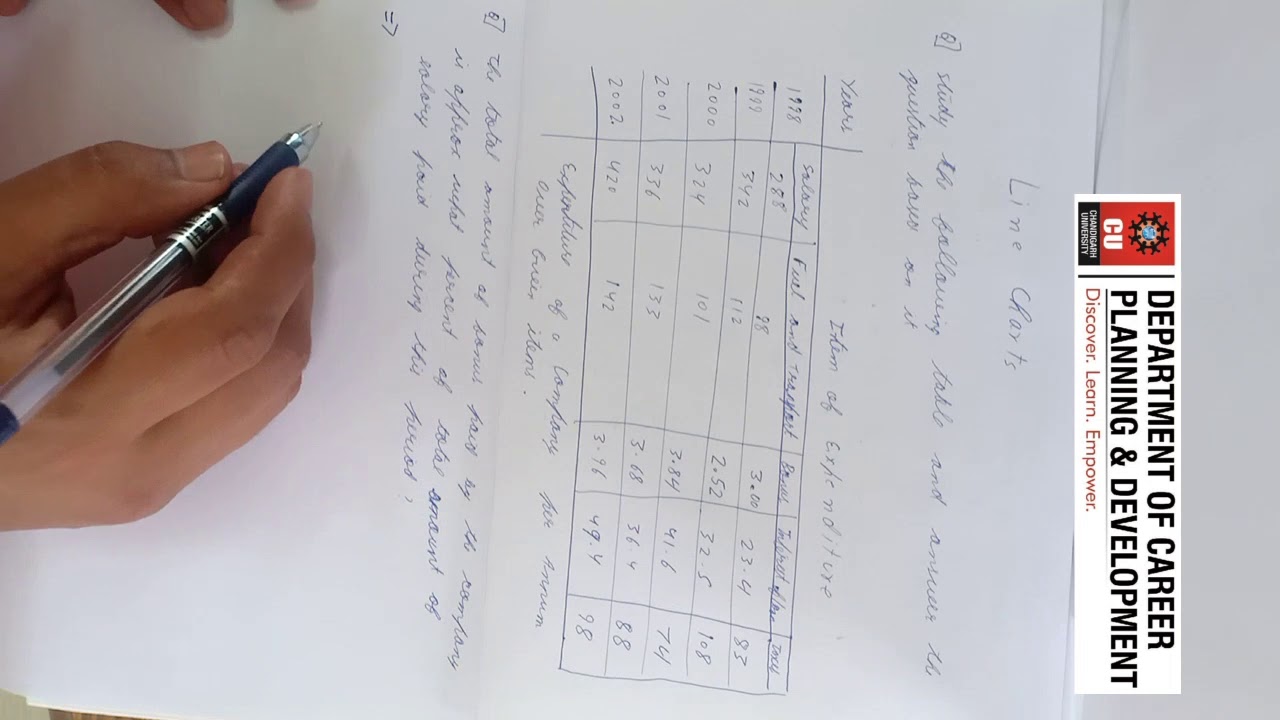 DEPARTMENT OF CAREER
PLANNING & DEVELOPMENT
Discover. Learn. Empower.
CU
CHANDIGARH
UNIVERSITY
Line Charts
Q] study the following table and answer the
question based on it
Years Item of Expenditure
Salary Fuel and Transport Bonus Interest of loan Taxes
1998 288 98 3.00 23.4 83
1999 342 112 2.52 32.5 108
2000 324 101 3.84 41.6 74
2001 336 133 3.68 36.4 88
2002 420 142 3.96 49.4 98
Expenditure of a Company per Annum
over Given items.
Q] The total amount of bonus paid by the company
is approx what percent of total amount of
salary paid during this period?
=>